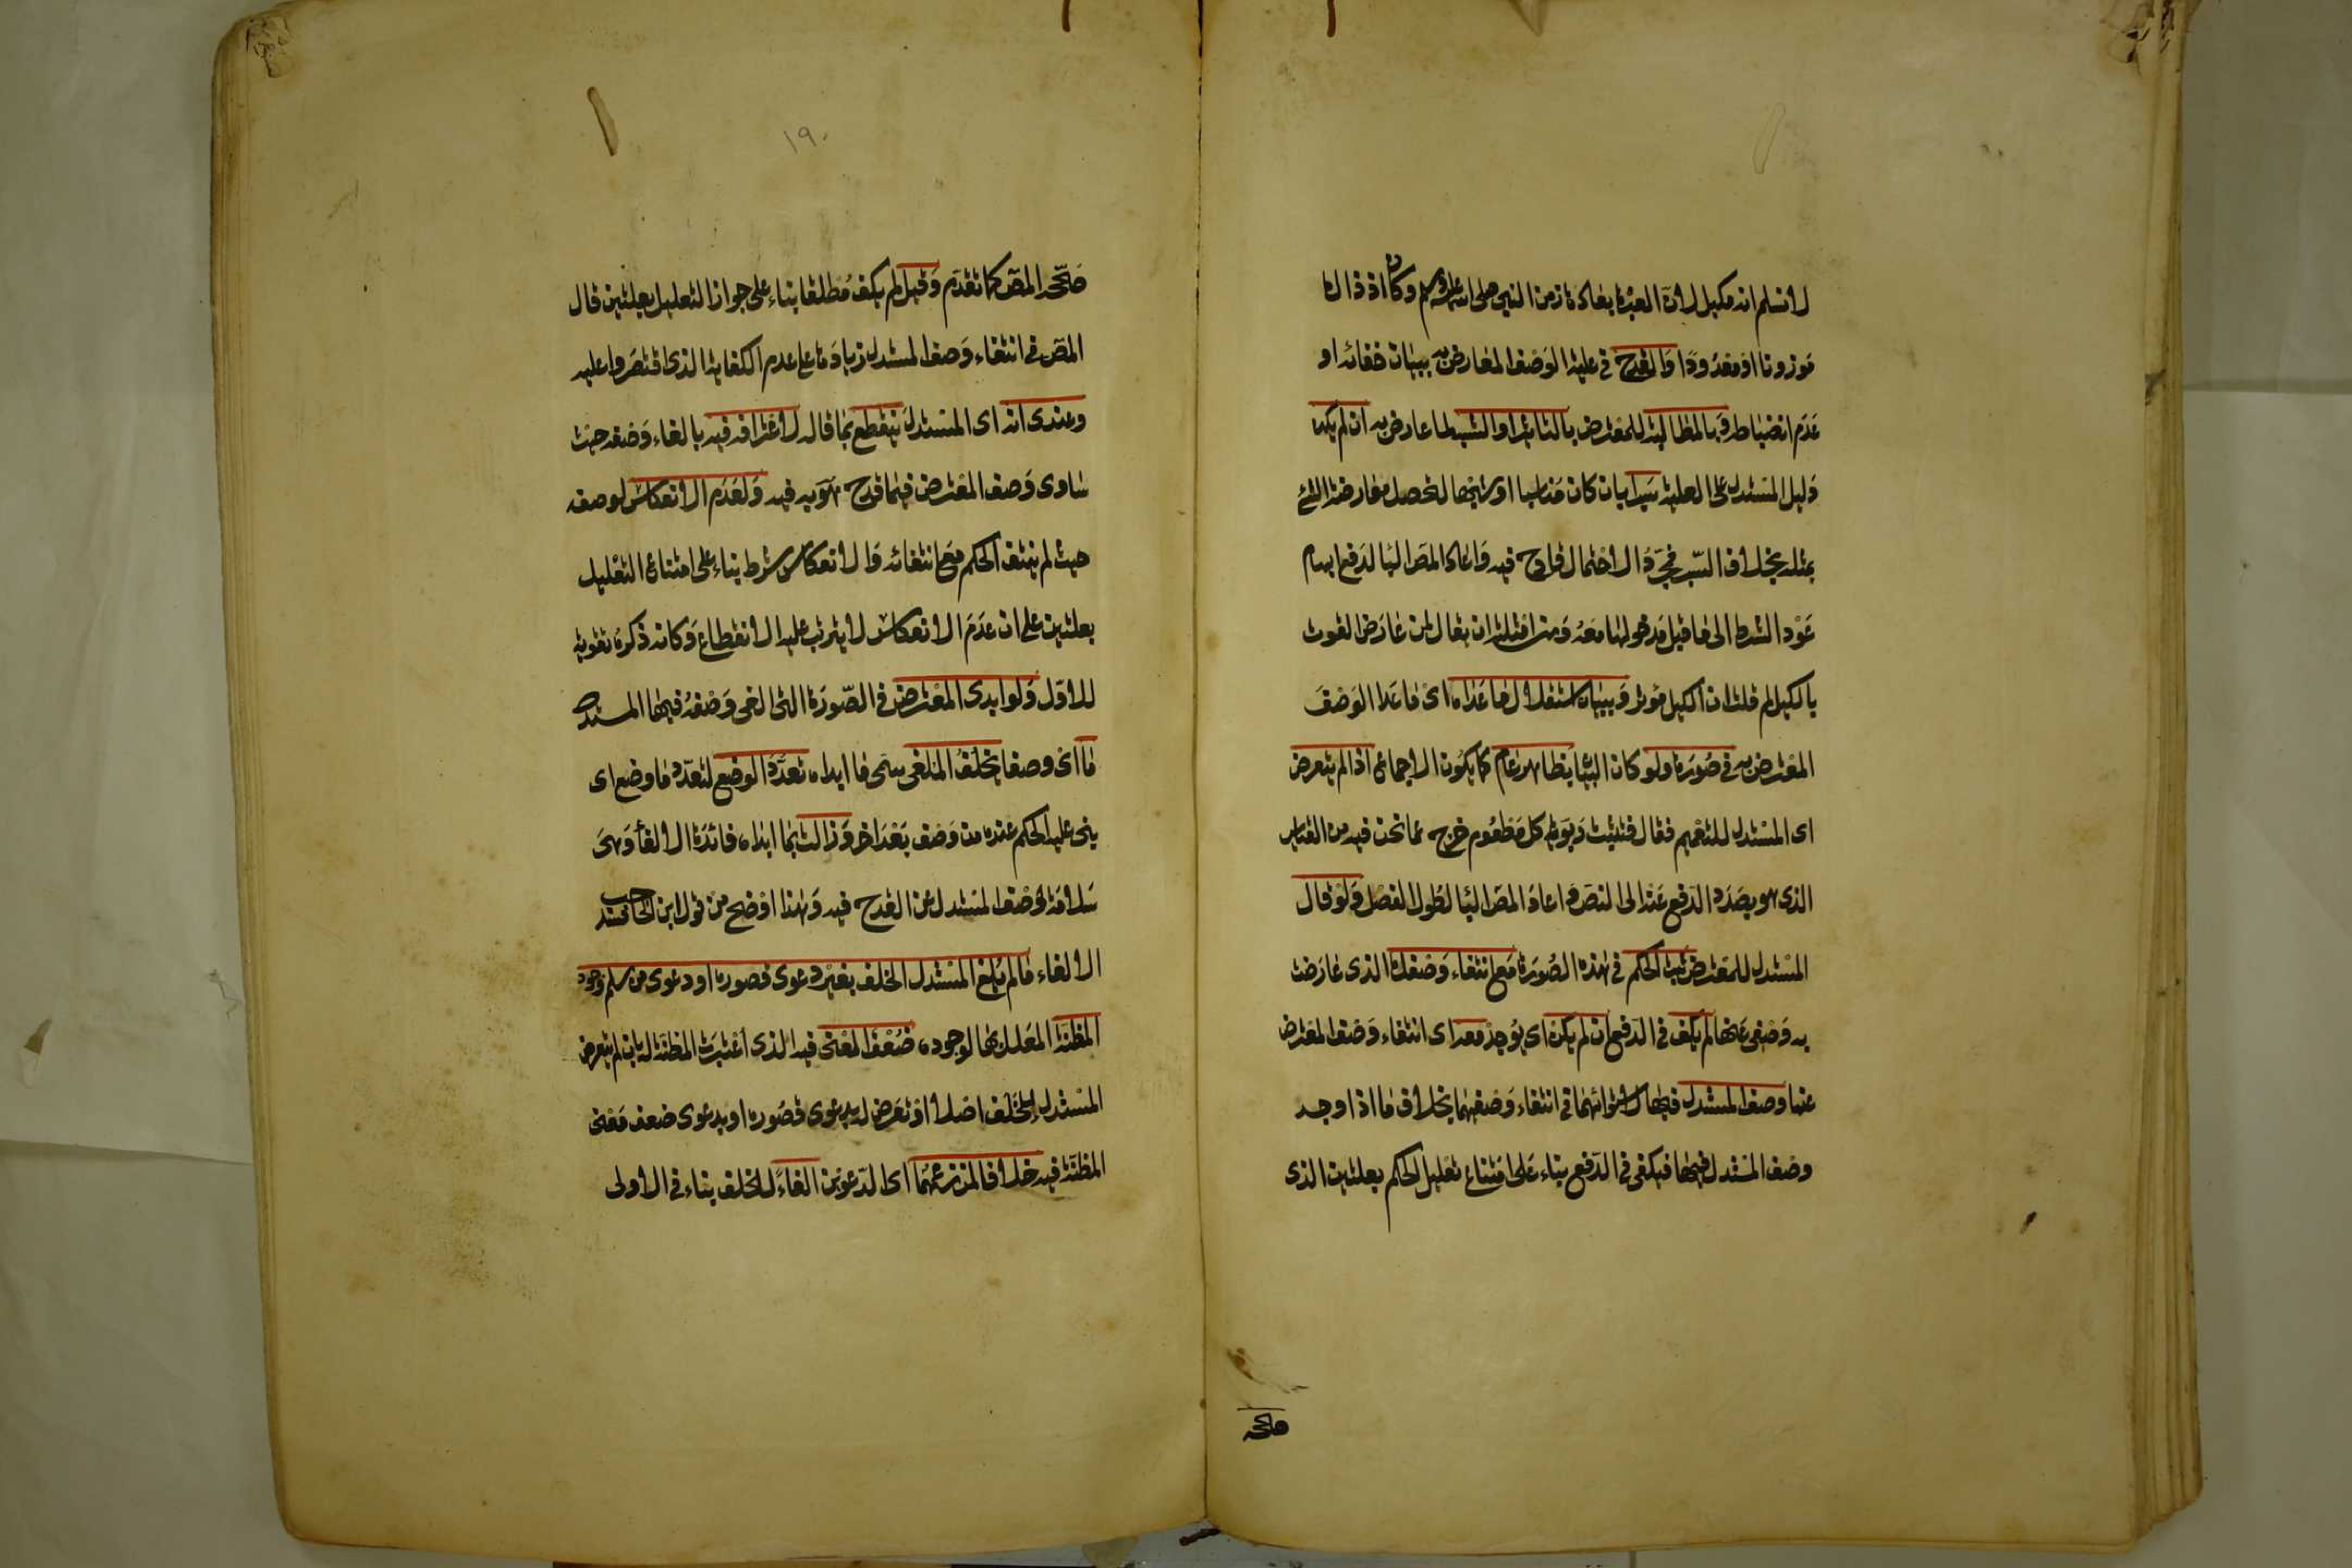 لا نسلم انه مكيل لان العبرة بعادة زمن النبي صلى الله عليه وسلم وكان اذ ذاك
موزونا او معدودا والقدح في علية الوصف المعارض به ببيان خفائه او
عدم انضباطه وبالمطالبة للمعترض بالتاثير او الشبه لما عارض به ان لم يكن
دليل المستدل على العلية سبرا بان كان مناسبا او شبها لتحصل معارضة الشئ
بمثله بخلاف السبر فمجرد الاحتمال قادح فيه واعاد المص البا لدفع ايهام
عود الشرط الى ما قبل مدخولها معه ومن امثلته ان يقال لمن عارض القوت
بالكيل لم قلت ان الكيل مؤثر وببيان استقلال ما عداه اى ما عدا الوصف
المعترض به في صورة ولو كان البيان بظاهر عام كما يكون الاجماع اذا لم يتعرض
اى المستدل للتعميم فقال فتثبت ربوية كل مطعوم خرج عما نحن فيه من القياس
الذى هو بصدد الدفع عنه الى النص واعاد المص البا لطول الفصل ولو قال
المستدل للمعترض ثبت الحكم في هذه الصورة مع انتفاء وصفك الذى عارضت
به وصفى عنها لم يكف في الدفع ان لم يكن اى يوجد معه اى انتفاء وصف المعترض
عنها وصف المستدل فيها لاستوائهما في انتفاء وصفيهما بخلاف ما اذا وجد
وصف المستدل فيها فيكفى في الدفع بناء على امتناع تعليل الحكم بعلتين الذى
صححه
١٩٠
صححه المص كما تقدم وقيل لم يكف مطلقا بناء على جواز التعليل بعلتين قال
المص في انتفاء وصف المستدل زيادة على عدم الكفاية الذى اقتصروا عليه
وعندى انه اى المستدل ينقطع بما قاله لاعترافه فيه بالغاء وصفه حيث
ساوى وصف المعترض فيما قدح هو به فيه ولعدم الانعكاس لوصفه
حيث لم ينتف الحكم مع انتفائه والانعكاس شرط بناء على امتناع التعليل
بعلتين على ان عدم الانعكاس لا يترتب عليه الانقطاع وكانه ذكره تقوية
للاول ولو ابدى المعترض في الصورة التى الغى وصفه فيها المستدل
ما اى وصفا يخلف الملغى سمى ما ابداه تعدد الوضع لتعدد ما وضع اى
بنى عليه الحكم عنده من وصف بعد اخر وزالت بما ابداه فائدة الالغا وهى
سلامة وصف المستدل عن القدح فيه وهذا اوضح من قول ابن الحاجب فسد
الالغاء ما لم يلغ المستدل الخلف بغير دعوى قصوره او دعوى من سلم وجود
المظنة المعلل بها لوجوده ضعف المعنى فيه الذى اعتبرت المظنة له بان لم يتعرض
المستدل للخلف اصلا او تعرض له بدعوى قصوره او بدعوى ضعف معنى
المظنة فيه خلافا لمن زعمهما اى الدعوين الغاء للخلف بناء في الاولى